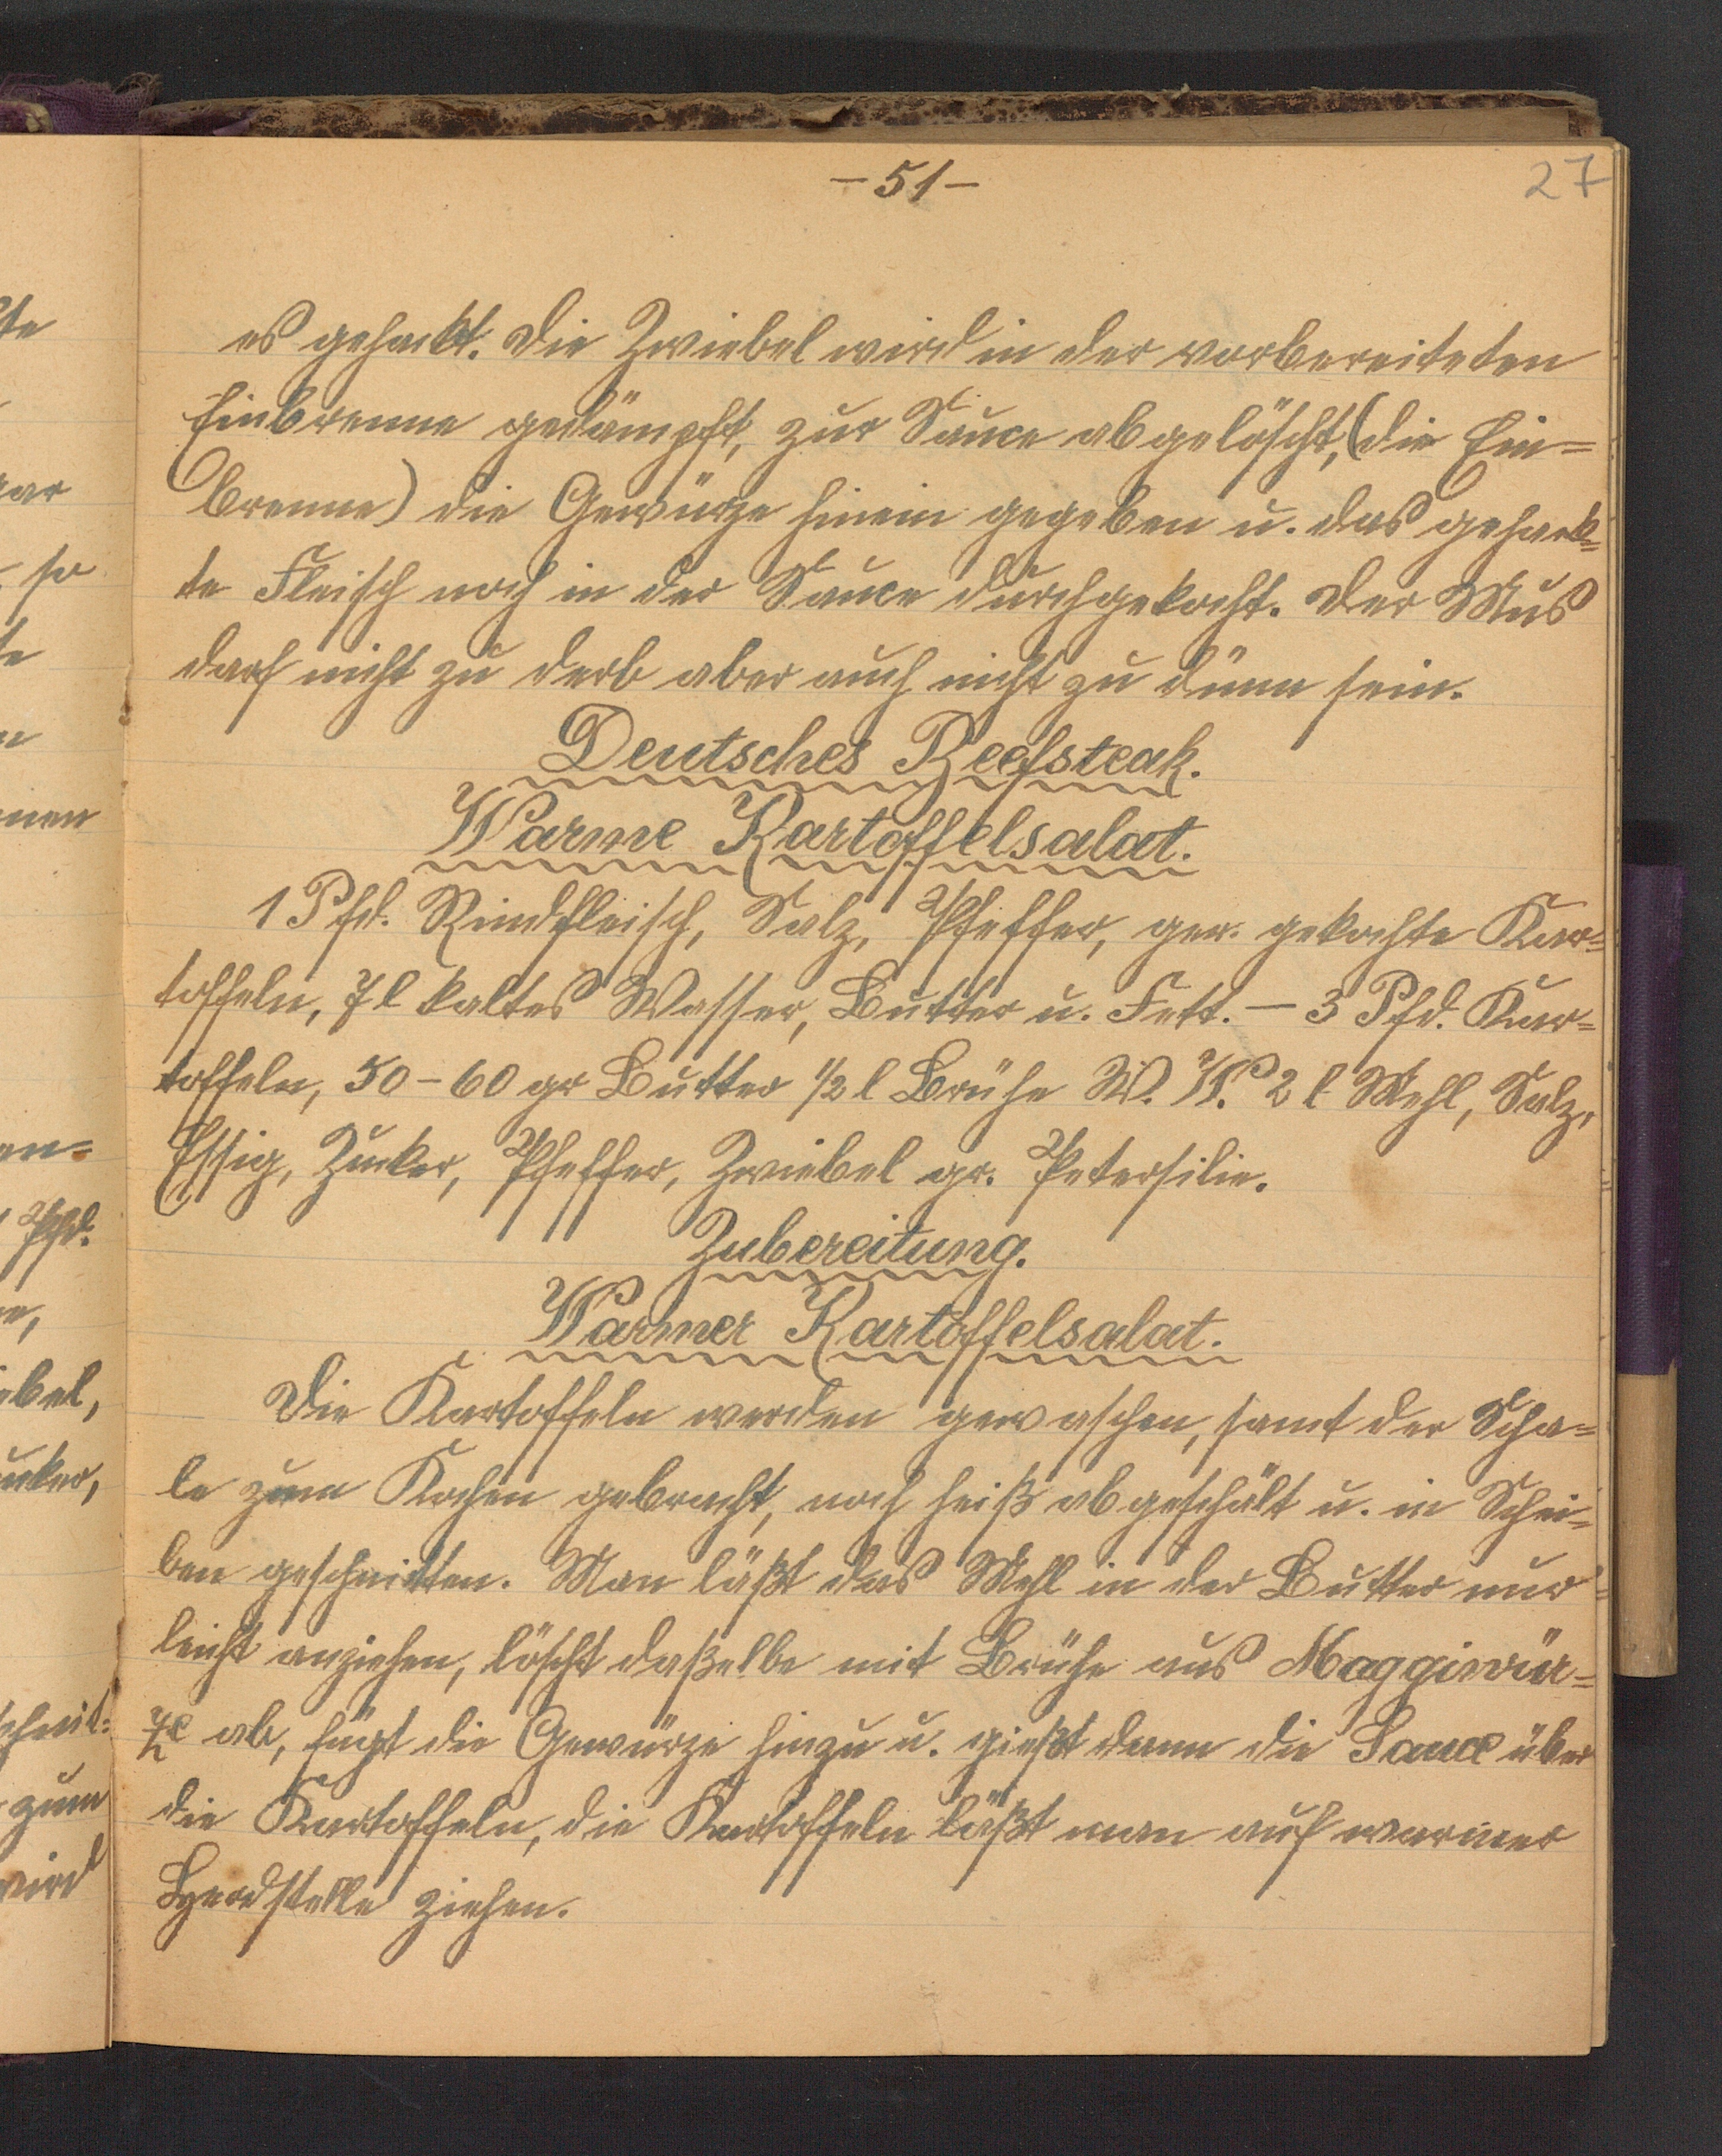 - 51 -
27
es gehackt. Die Zwiebel wird in der vorbereiteten
Einbrenne gedämpft, zur Sauce abgelöscht, (die Ein=
brenne) die Gewürze hinein gegeben u. das gehack=
te Fleisch noch in der Sauce durchgekocht. Der Mus
darf nicht zu derb aber auch nicht zu dünn sein.
Deutsches Beefsteak.
Warme Kartoffelsalat.
1 Pfd. Rindfleisch, Salz, Pfeffer, ger. gekochte Kar=
toffeln, 7 l kaltes Wasser, Butter u. Fett. — 3 Pfd. Kar=
toffeln, 50 - 60 gr Butter 1/2 l Brühe W. W. 2 l Mehl, Salz,
Essig, Zucker, Pfeffer, Zwiebel gr. Petersilie.
Zubereitung.
Warmer Kartoffelsalat.
Die Kartoffeln werden gewaschen, samt der Scha=
le zum Kochen gebracht, noch heiß abgeschält u. in Schei=
ben geschnitten. Man läßt das Mehl in der Butter nur
leicht anziehen, löscht daßelbe mit Brühe aus Maggiwür=
ze ab, fügt die Gewürze hinzu u. gießt dann die Sauce über
die Kartoffeln, die Kartoffeln läßt man auf warmer
Herdstelle ziehen.